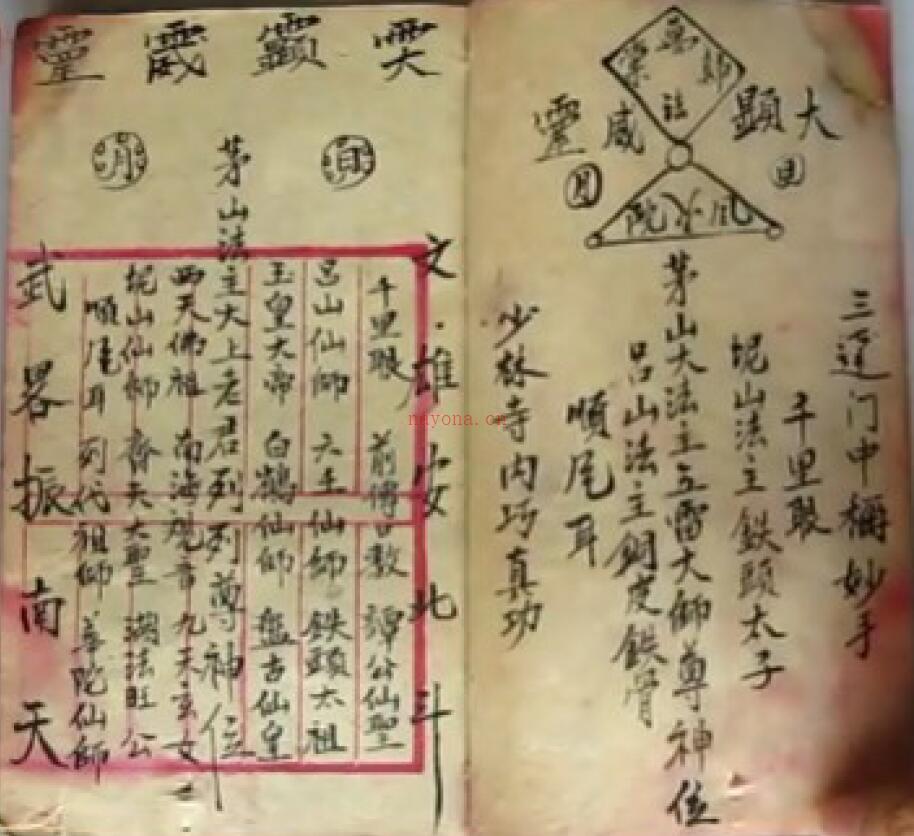 萬法
大顯威靈
日 月
風火院
门中 妙手
千里眼
坭山法主 鉄頭太子
茅山大法主五雷大師尊神位
吕山法主銅皮鉄骨
順尾耳
少林寺内巧真功
文雄安北斗
千里眼 前傳口教 譚公仙聖
吕山仙師 六壬仙師 鉄頭太祖
玉皇大帝 白鶴仙師 盤古仙皇
茅山法主大上老君列列尊神位
西天佛祖 南海覌音 九天玄女
坭山仙師 齊天大聖 法旺公
順尾耳 列代祖師 華陀仙師
武畧振南天
nayona.cn